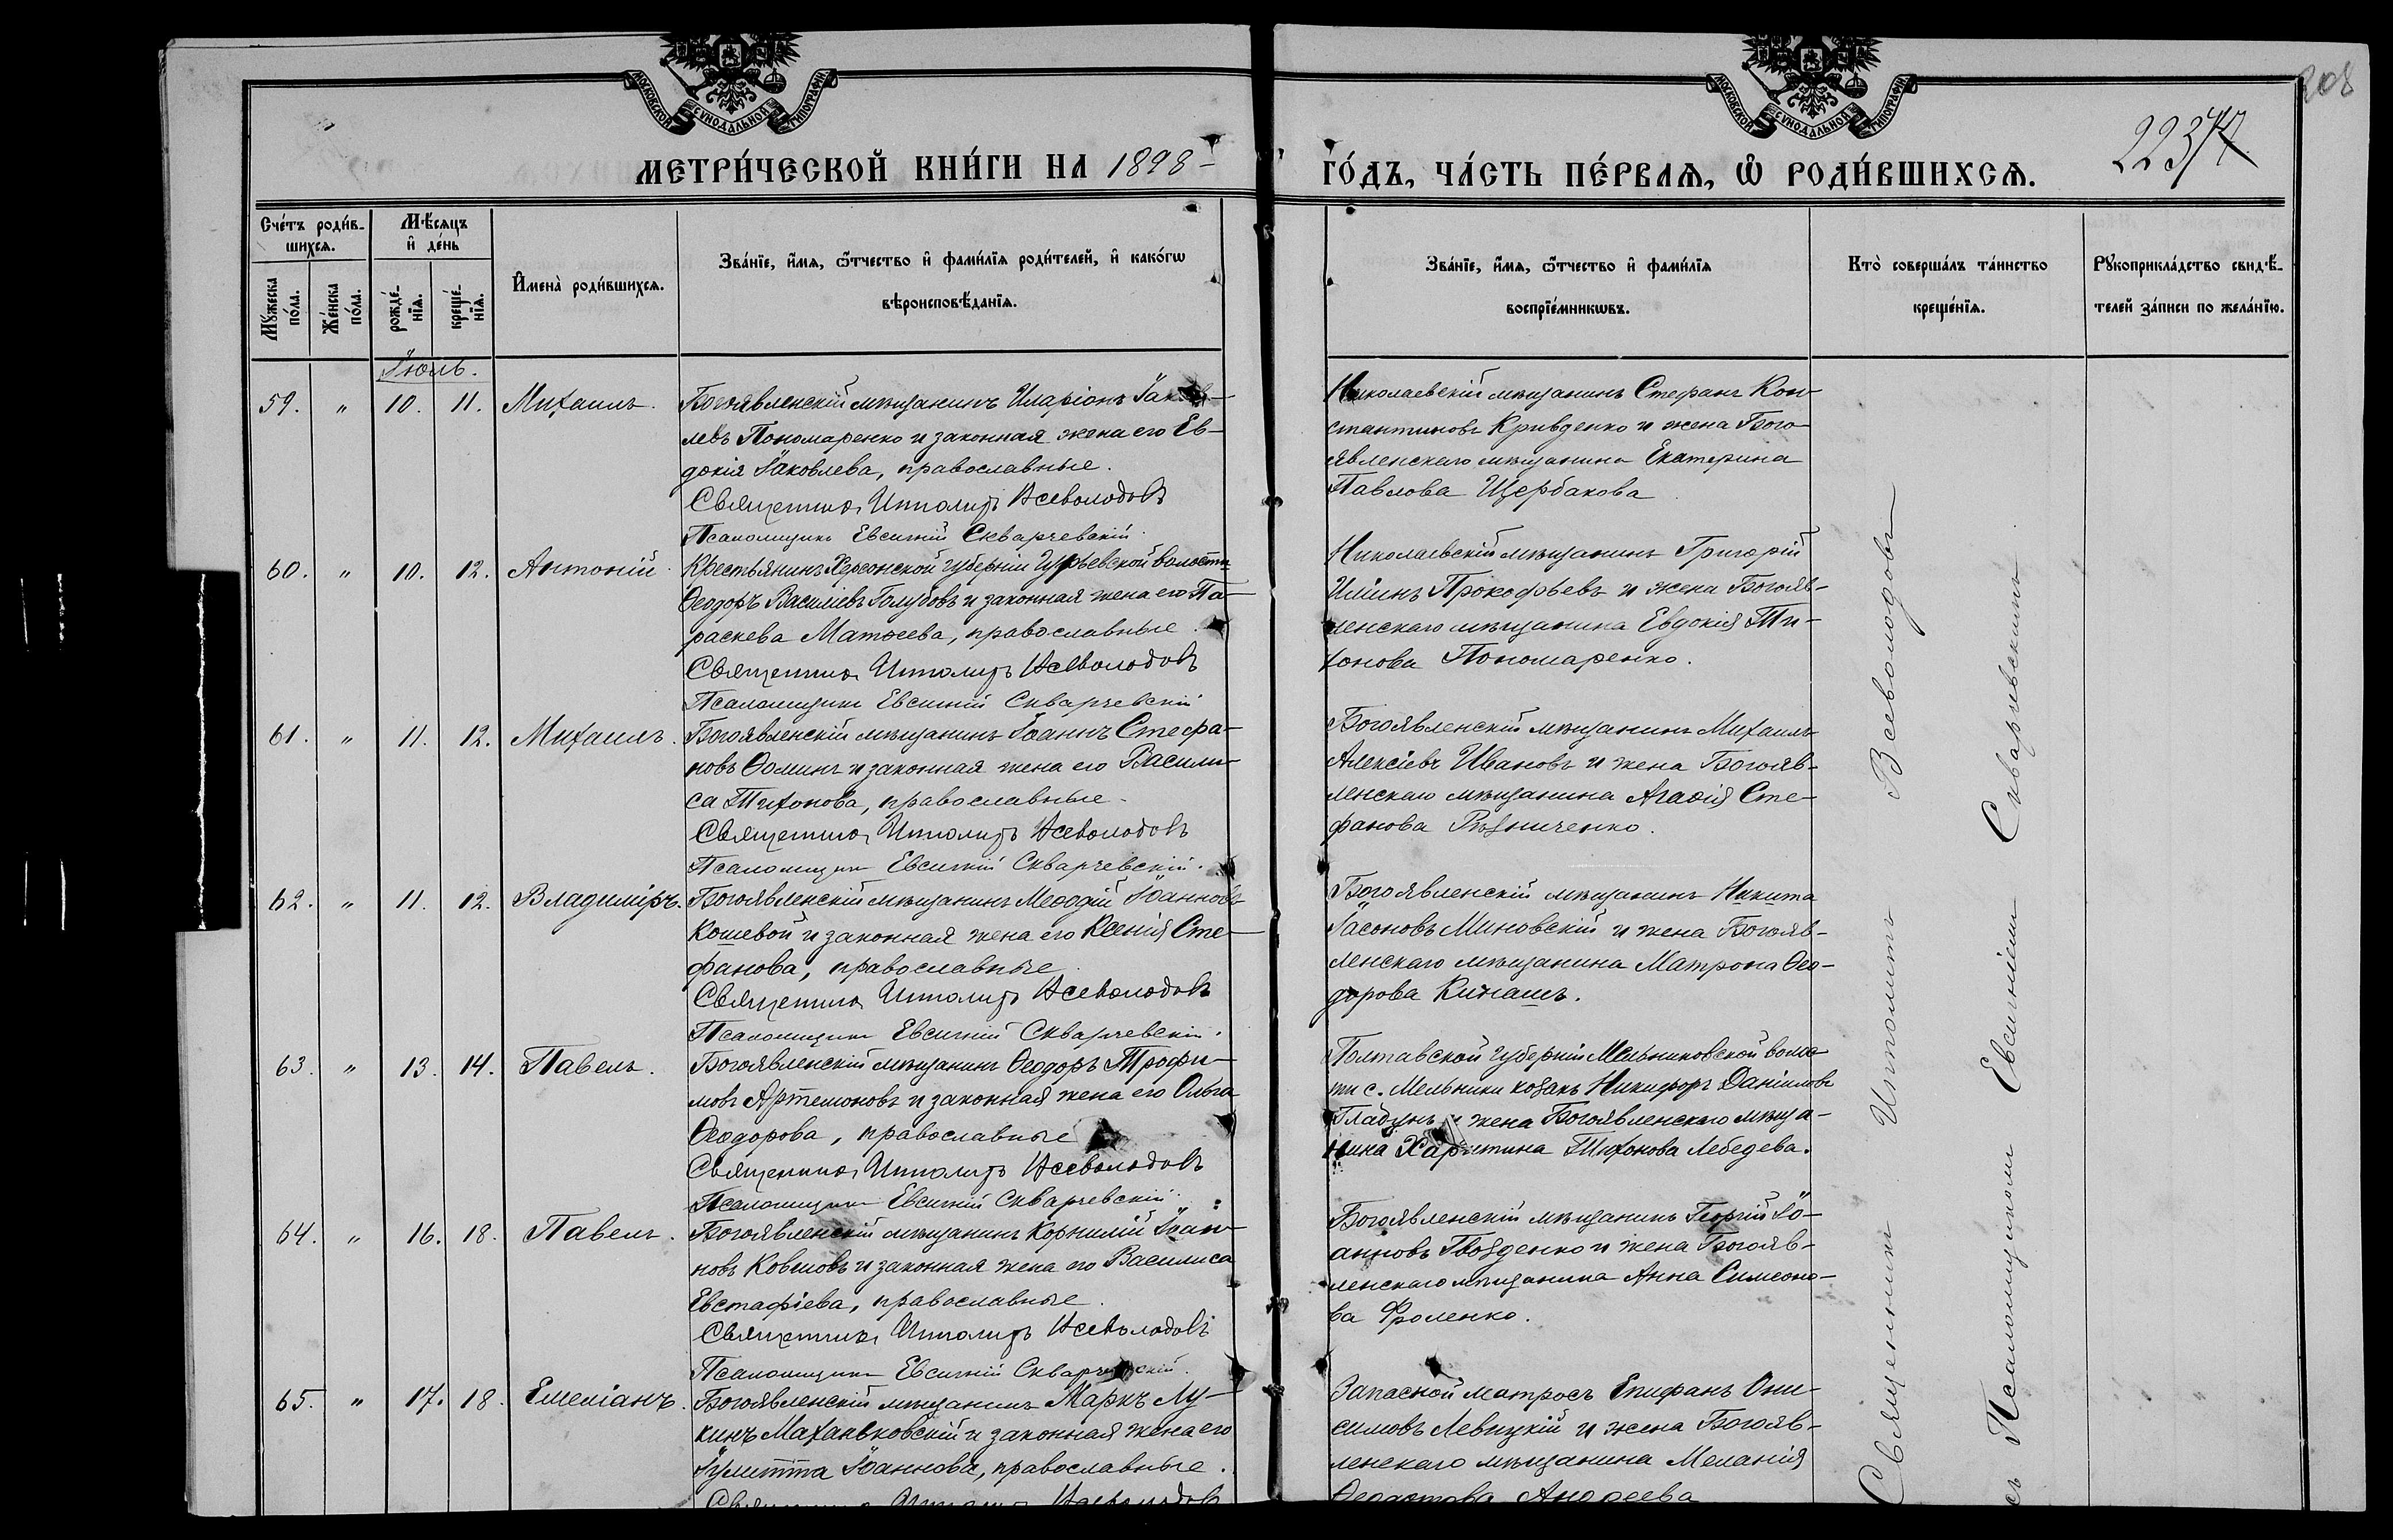 МОСКОВСКОЙ СѴНОДАЛЬНОЙ ТИПОГРАФІИ
МОСКОВСКОЙ СѴНОДАЛЬНОЙ ТИПОГРАФІИ
208
МЕТРИ́ЧЕСКОЙ КНИ́ГИ НА 1898
ГО́ДЪ, ЧА́СТЬ ПЕ́РВАѦ, Ѡ҆ РОДИ́ВШИХСѦ.
Сче́тъ роди́в-
шихсѧ.
Мꙋ́жеска
по́ла.
Же́нска
по́ла.
Мѣ́сѧцъ
и҆ де́нь
рожде́-
нїѧ.
креще́-
нїѧ.
И҆мена̀ роди́вшихсѧ.
Зва́нїе, и҆́мѧ, ѻ҆́тчество и҆ фами́лїѧ роди́телей, и҆ како́гѡ
вѣроисповѣ́данїѧ.
Зва́нїе, и҆́мѧ, ѻ҆́тчество и҆ фами́лїѧ
воспрїе́мникѡвъ.
Кто̀ соверша́лъ та́инство
креще́нїѧ.
Рꙋкоприкла́дство свидѣ́-
телей за́писи по жела́нїю.
Іюль.
59. " 10. 11. Михаилъ.
Богоявленскій мѣщанинъ Иларіонъ Іаков-
левъ Пономаренко и законная жена его Ев-
докія Іаковлева, православные.
Священникъ Ипполитъ Всеволодовъ
Псаломщикъ Евсигній Скварчевскій
Николаевскій мѣщанинъ Стефанъ Кон-
стантиновъ Кривденко и жена Бого-
явленскаго мѣщанина Екатерина
Павлова Щербакова
60. " 10. 12. Антоній
Крестьянинъ Херсонской губерніи волости
Ѳеодоръ Василіевъ Голубовъ и законная жена его Па-
раскева Матѳеева, православные.
Священникъ Ипполитъ Всеволодовъ
Псаломщикъ Евсигній Скварчевскій
Николаевскій мѣщанинъ Григорій
Иліинъ Прокофьевъ и жена Богояв-
ленскаго мѣщанина Евдокія Ти-
хонова Пономаренко.
61. " 11. 12. Михаилъ.
Богоявленскій мѣщанинъ Іоаннъ Стефа-
новъ Ѳоминъ и законная жена его Васили-
са Тихонова, православные.
Священникъ Ипполитъ Всеволодовъ
Псаломщикъ Евсигній Скварчевскій.
Богоявленскій мѣщанинъ Михаилъ
Алексіевъ Ивановъ и жена Богояв-
ленскаго мѣщанина Агаѳія Сте-
фанова Рѣзниченко.
62. " 11. 12. Владиміръ.
Богоявленскій мѣщанинъ Меѳодій Іоанновъ
Кошевой и законная жена его Ксенія Сте-
фанова, православные
Священникъ Ипполитъ Всеволодовъ
Псаломщикъ Евсигній Скварчевскій.
Богоявленскій мѣщанинъ Никита
Іасоновъ Миновскій и жена Богояв-
ленскаго мѣщанина Матрона Ѳео-
дорова
63. " 13. 14. Павелъ.
Богоявленскій мѣщанинъ Ѳеодоръ Трофи-
мовъ Артемоновъ и законная жена его Ольга
Ѳеодорова, православные
Священникъ Ипполитъ Всеволодовъ
Псаломщикъ Евсигній Скварчевскій.
Полтавской губерніи Мельниковской волос-
ти с. Мельники козакъ Никифоръ Даніиловъ
Гладунъ и жена Богоявленскаго мѣща-
нина Харитина Тихонова Лебедева.
64. " 16. 18. Павелъ.
Богоявленскій мѣщанинъ Корнилій Іоан-
новъ и законная жена его Василиса
Евстафіева, православные.
Священникъ Ипполитъ Всеволодовъ
Псаломщикъ Евсигній Скварчевскій.
Богоявленскій мѣщанинъ Георгій Іо-
анновъ Гвозденко и жена Богояв-
ленскаго мѣщанина Анна Симеоно-
ва Фроленко.
65. " 17. 18. Емеліанъ.
Богоявленскій мѣщанинъ Маркъ Лу-
кинъ и законная жена его
Іулитта Іоаннова, православные.
Священникъ Ипполитъ Всеволодовъ
Запасной матросъ Епифанъ Они-
симовъ Левицкій и жена Богояв-
ленскаго мѣщанина Меланія
Андреева
Священникъ Ипполитъ Всеволодовъ
съ Псаломщикомъ Евсигніемъ Скварчевскимъ